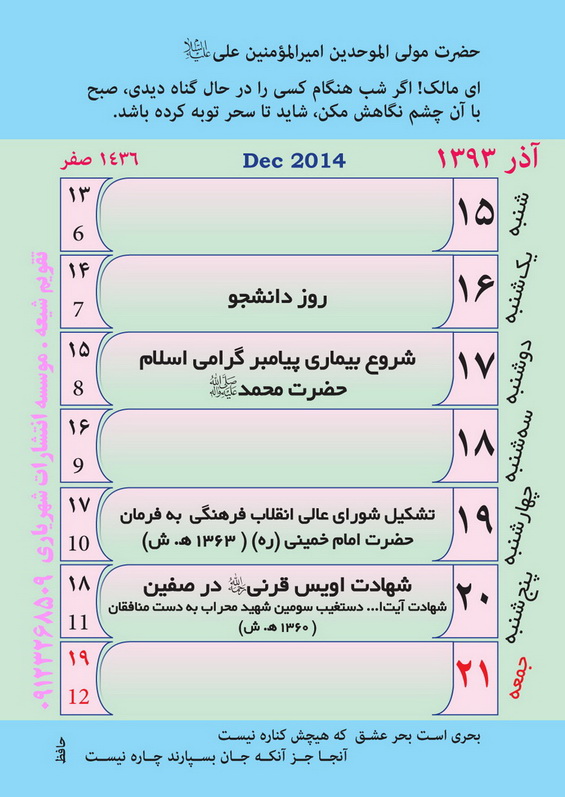 حضرت مولی الموحدین امیرالمؤمنین علی علیه‌السلام
ای مالک! اگر شب هنگام کسی را در حال گناه دیدی، صبح
با آن چشم نگاهش مکن، شاید تا سحر توبه کرده باشد.
آذر ۱۳۹۳
Dec 2014
۱۴۳۶ صفر
شنبه
۱۵
۱۳
6
یک‌شنبه
۱۶
روز دانشجو
۱۴
7
دوشنبه
۱۷
شروع بیماری پیامبر گرامی اسلام
حضرت محمد ﷺ
۱۵
8
سه‌شنبه
۱۸
۱۶
9
چهارشنبه
۱۹
تشکیل شورای عالی انقلاب فرهنگی به فرمان
حضرت امام خمینی (ره) (۱۳۶۳ ه‍. ش)
۱۷
10
پنج‌شنبه
۲۰
شهادت اویس قرنی در صفین
شهادت آیت‌ا... دستغیب سومین شهید محراب به دست منافقان
(۱۳۶۰ ه‍. ش)
۱۸
11
جمعه
۲۱
۱۹
12
تقویم شیعه . موسسه انتشارات شهریاری ۰۹۱۲۳۲۶۸۵۰۹
بحری است بحر عشق که هیچش کناره نیست
آنجا جز آنکه جان بسپارند چاره نیست
حافظ